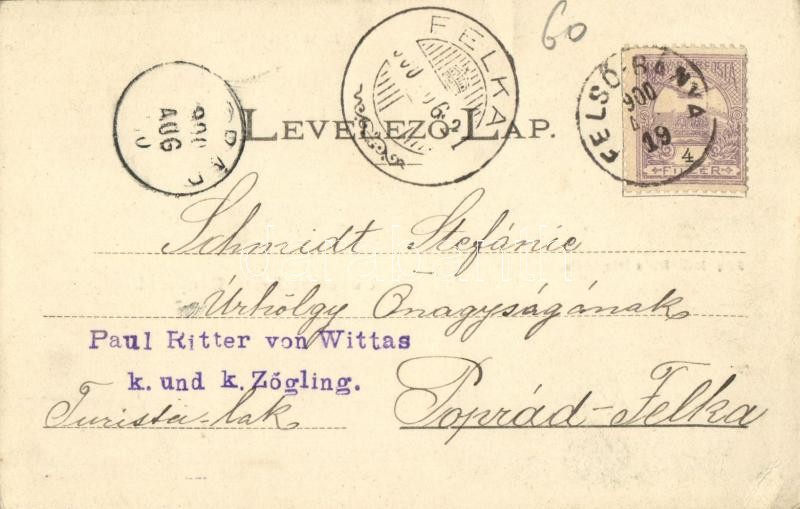 60
FELKA
FELSŐ-BÁNYA
900
19
4
FILLÉR
900
AUG
LEVELEZŐ-LAP.
Schmidt Stefánie
Úrhölgy Őnagyságának
Paul Ritter von Wittas
k. und k. Zögling.
Turista-lak
Poprád-Felka
darabanth